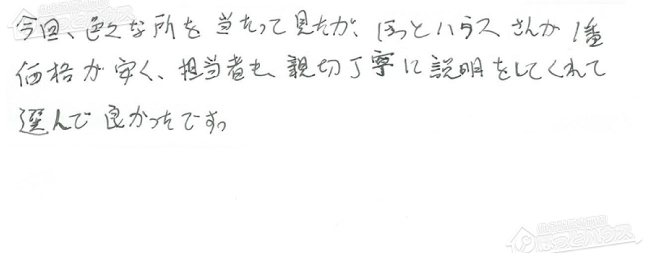 今回、色々な所を当たって見たが、ほっとハウスさんが1番
価格が安く、担当者も、親切丁寧に説明をしてくれて
選んで良かったです。
ほっとハウス